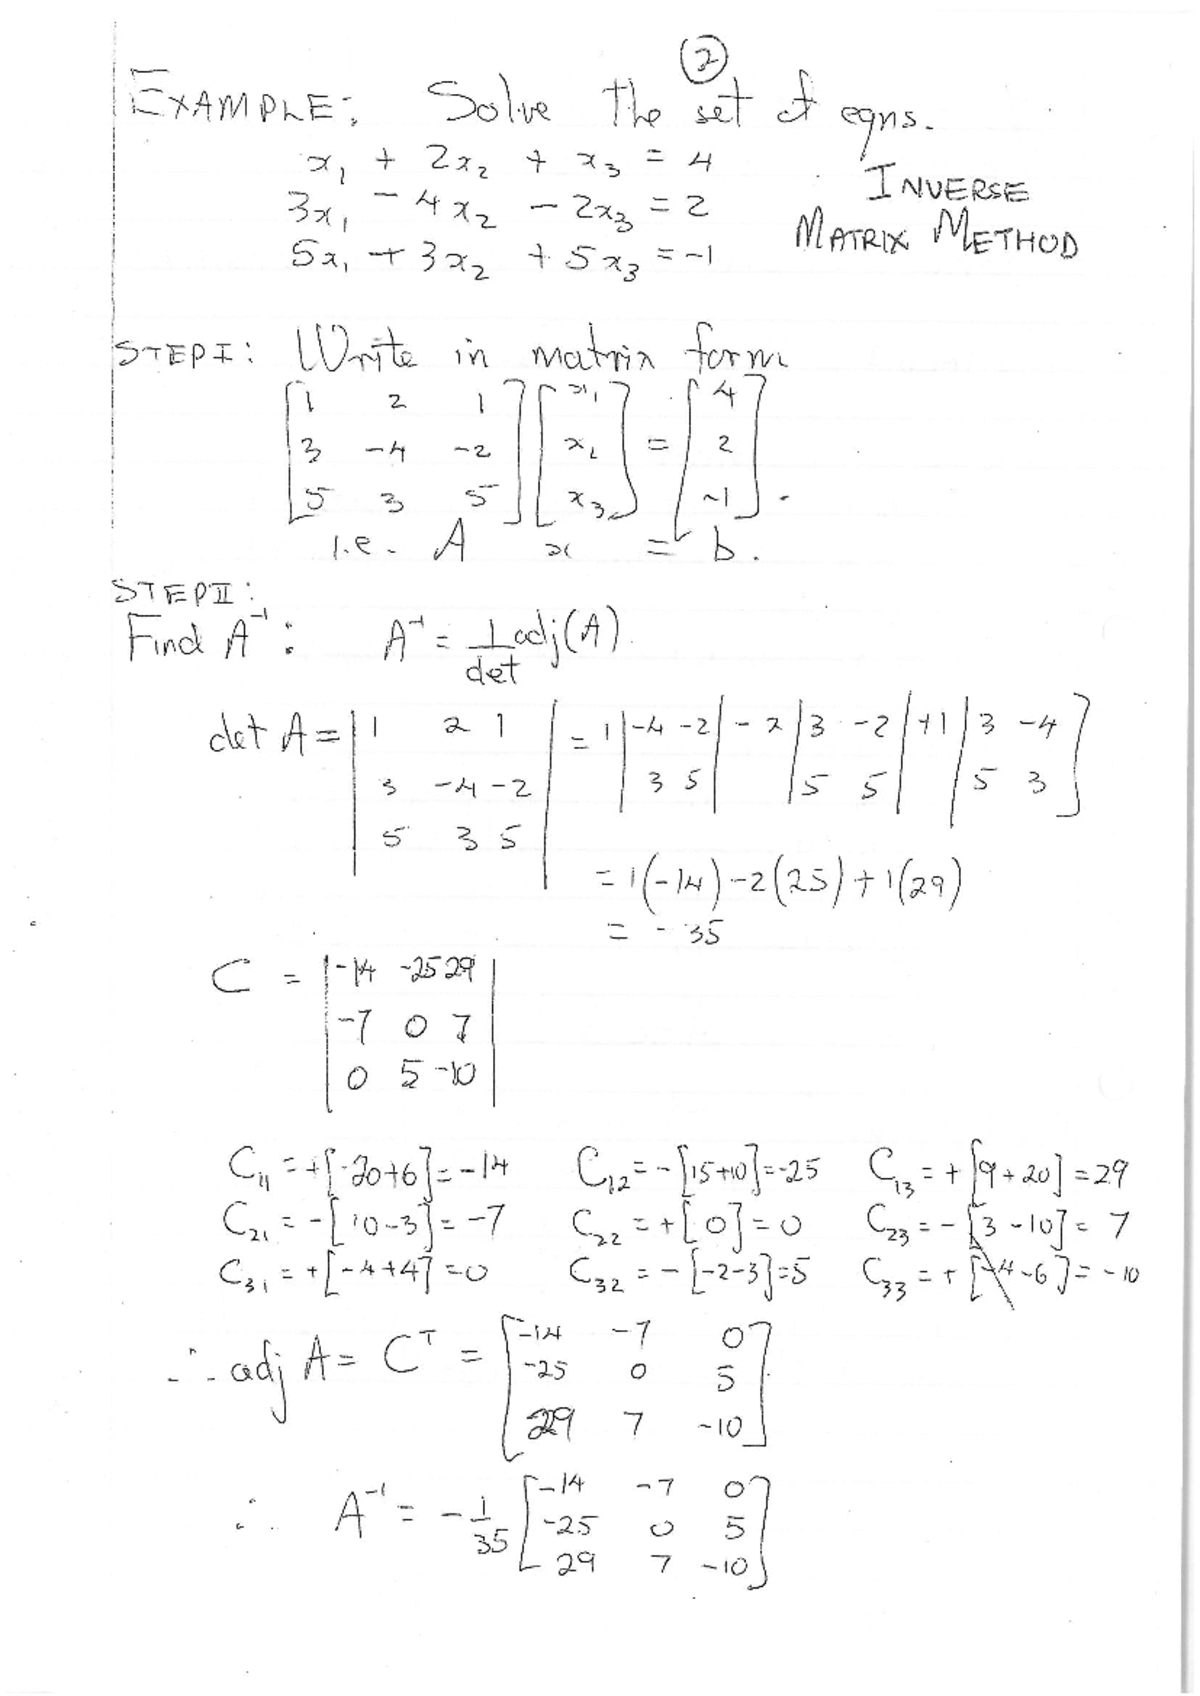 ②
EXAMPLE: Solve the set of eqns.
x₁ + 2x₂ + x₃ = 4
3x₁ - 4x₂ - 2x₃ = 2
5x₁ + 3x₂ + 5x₃ = -1
INVERSE
MATRIX METHOD
STEP I: Write in matrix form
[1 2 1] [x₁] = [4]
[3 -4 -2] [x₂] [2]
[5 3 5] [x₃] [-1].
i.e. A x = b.
STEP II:
Find A⁻¹: A⁻¹ = 1/det adj(A).
det A = |1 2 1| = 1|-4 -2| - 2|3 -2| +1|3 -4]
|3 -4 -2| |3 5| |5 5| |5 3]
|5 3 5|
= 1(-14) -2(25) + 1(29)
= -35
C = |-14 -25 29|
|-7 0 7|
|0 5 -10|
C₁₁ = +[-20+6] = -14 C₁₂ = -[15+10] = -25 C₁₃ = +[9+20] = 29
C₂₁ = -[10-3] = -7 C₂₂ = +[0] = 0 C₂₃ = -[3-10] = 7
C₃₁ = +[-4+4] = 0 C₃₂ = -[-2-3] = 5 C₃₃ = +[-4-6] = -10
∴ adj A = Cᵀ = [-14 -7 0]
[-25 0 5]
[29 7 -10]
∴ A⁻¹ = -1/35 [-14 -7 0]
[-25 0 5]
[29 7 -10]